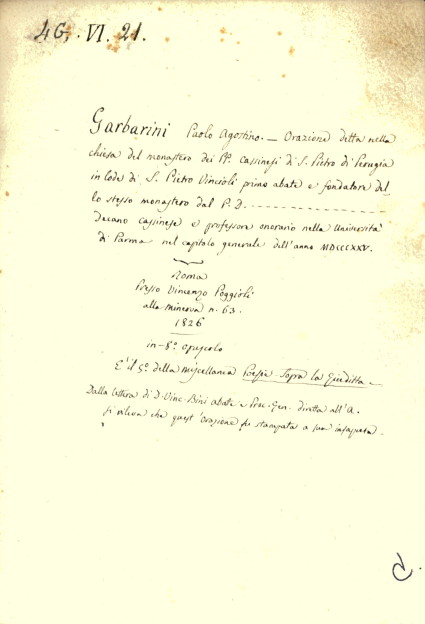 46. VI. 21.
Garbarini Paolo Agostino. — Orazione detta nella
chiesa del monastero dei PP. Cassinesi di S. Pietro di Perugia
in lode di S. Pietro Vincioli primo abate e fondatore del
lo stesso monastero dal P. D. - - - - - - - - - - - - - - -
Decano cassinese e professore onorario nella Università
di Parma nel capitolo generale dell'anno MDCCCXXV.
Roma
Presso Vincenzo Poggioli
alla minerva n. 63.
1826
in-8º opuscolo
E' il 5º della miscellanea Poesie sopra la Giuditta
Dalla lettera di D. Vinc. Bini abate e Proc. Gen. diretta all'A.
si rileva che quest'orazione fu stampata a sua insaputa.